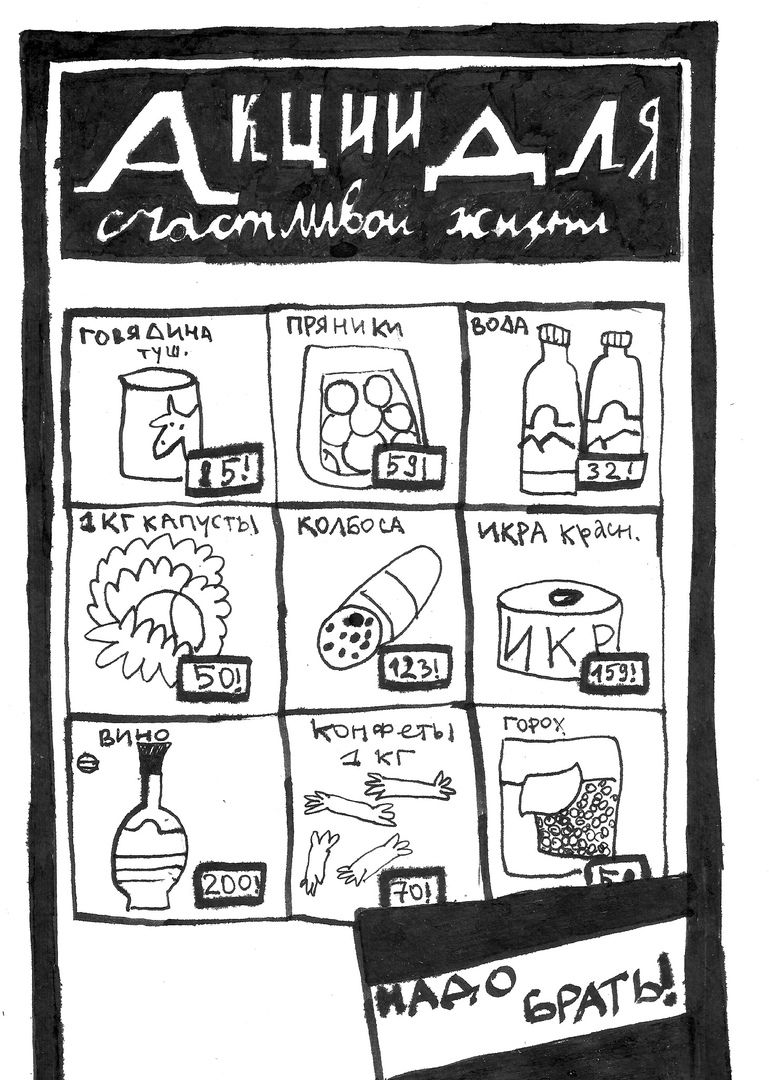 Акции для
счастливой жизни
ГОВЯДИНА
ТУШ.
15!
ПРЯНИКИ
59!
ВОДА
32!
1 КГ КАПУСТЫ
50!
КОЛБОСА
123!
ИКРА красн.
ИКР
159!
ВИНО
200!
КОНФЕТЫ
1 КГ
70!
ГОРОХ
НАДО БРАТЬ!